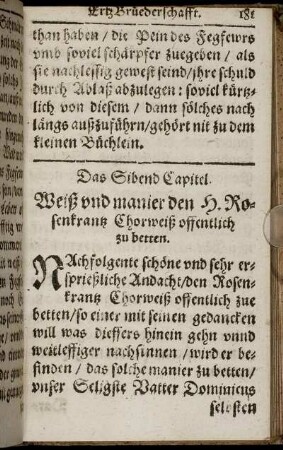 Ertz Brüederschafft. 181
than haben / die Pein des Fegfewrs
vmb soviel schärpfer zuegeben / als
sie nachlessig gewest seind / jhre schuld
durch Ablaß abzulegen: soviel kürtz-
lich von diesem / dann sölches nach
längs außzuführn / gehört nit zu dem
kleinen Büchlein.
Das Sibend Capitel.
Weiß vnd manier den H. Ro-
senkrantz Chorweiß offentlich
zu betten.
NAchfolgente schöne vnd sehr er-
sprießliche Andacht / den Rosen-
krantz Chorweiß offentlich zue
betten / so einer mit seinen gedancken
will was dieffers hinein gehn vnnd
weitleffiger nachsinnen / wird er be-
finden / das solche manier zu betten /
vnser Seligste Vatter Dominicus
selbsten